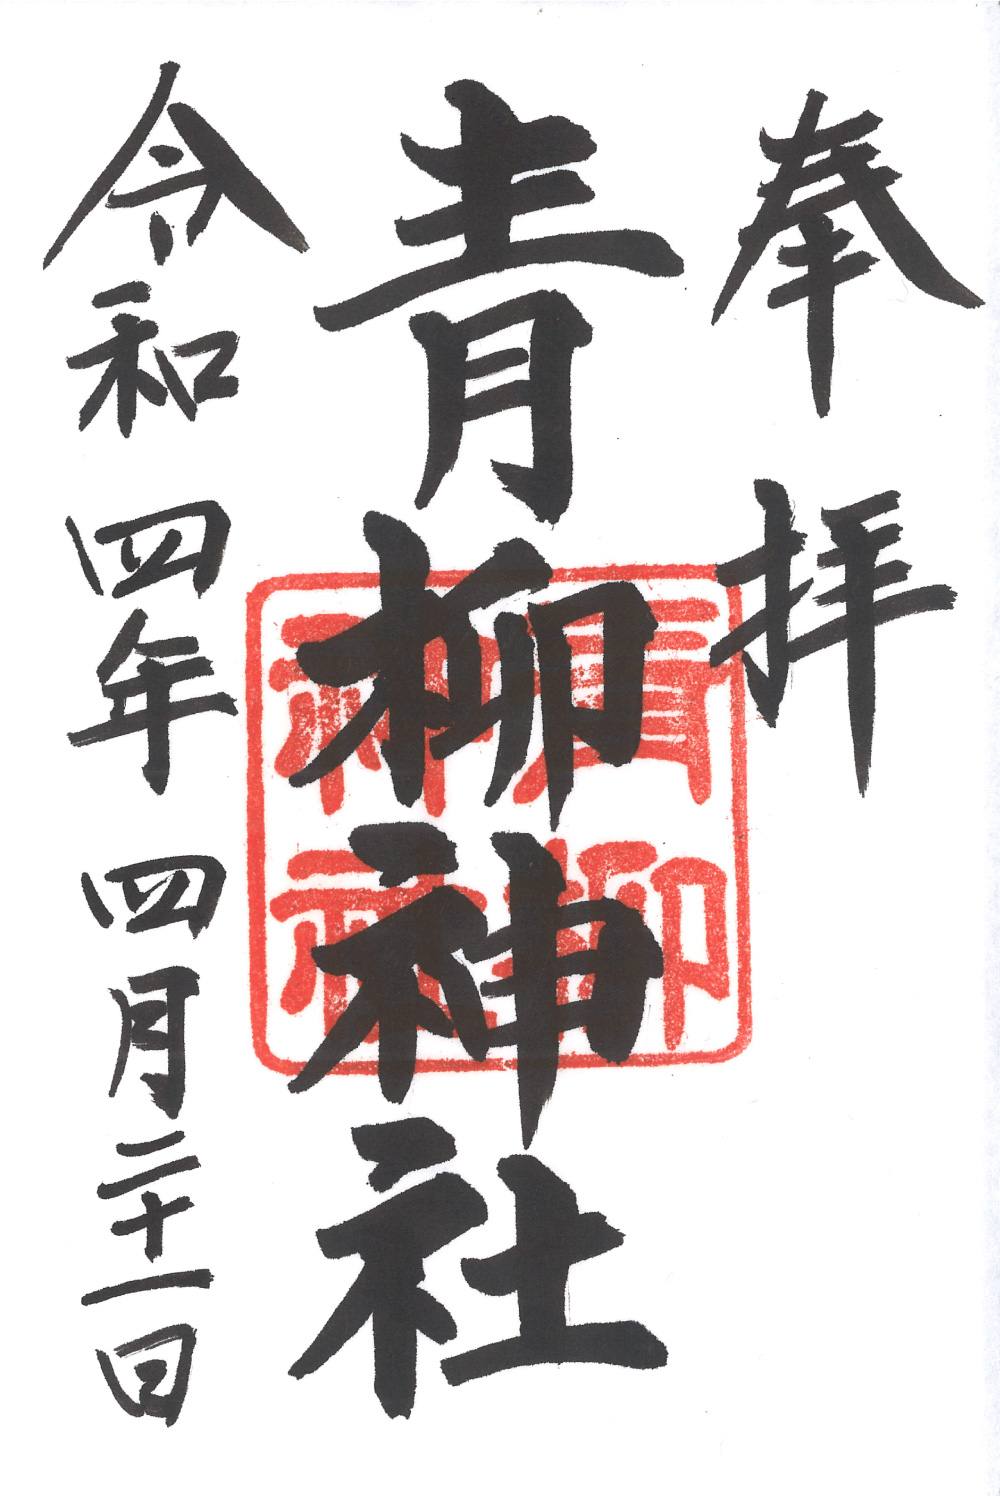 奉拝
青柳神社
青柳神社
令和四年四月二十一日